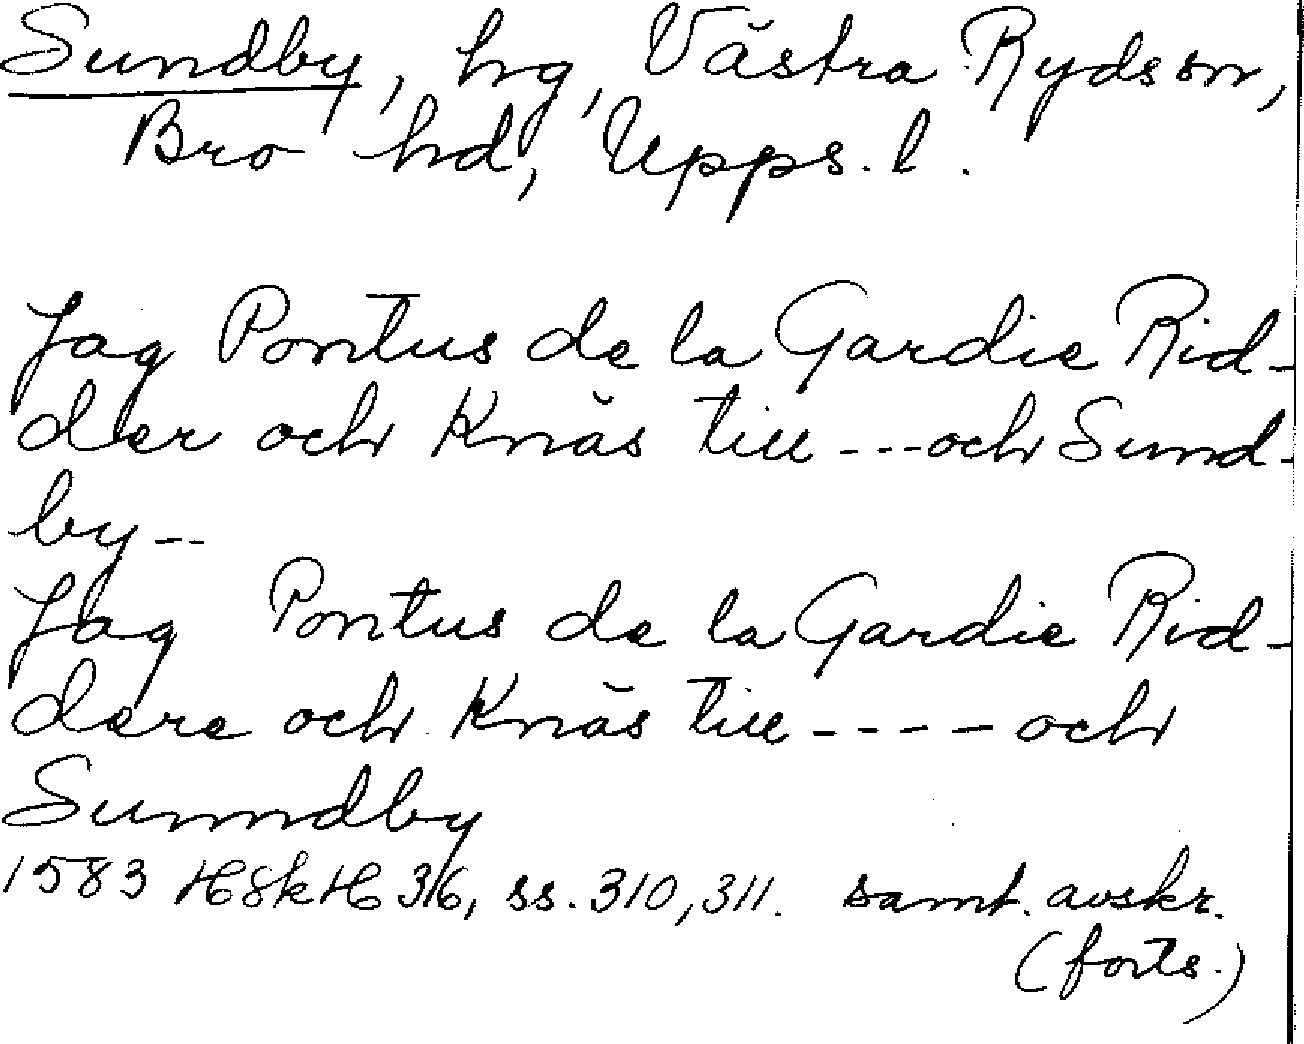 Sundby, hg, Västra Ryds sn,
Bro hd, Upps. l.
Jag Pontus de la Gardie Rid-
der och Knäs till ---och Sund-
by--
Jag Pontus de la Gardie Rid-
dere och Knäs till ---- och
Sunndby
1583 HSkH 36, ss. 310, 311. samt. avskr.
(forts.)